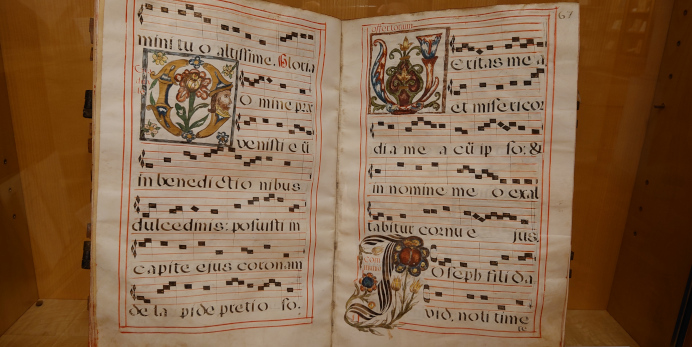 mini tu o altissime. Gloria
D
O mine præ
venisti e ū
in benedi ctio nibus
dulcedinis: posuisti in
capite ejus coronam
de la pide pretio so.
67
offertorium
V
Eritas me a
et misericor
dia me a cū ip so: &
in nomine me o exal
tabitur cornu e jus.
J
Oseph fili Da
vid, noli time
re